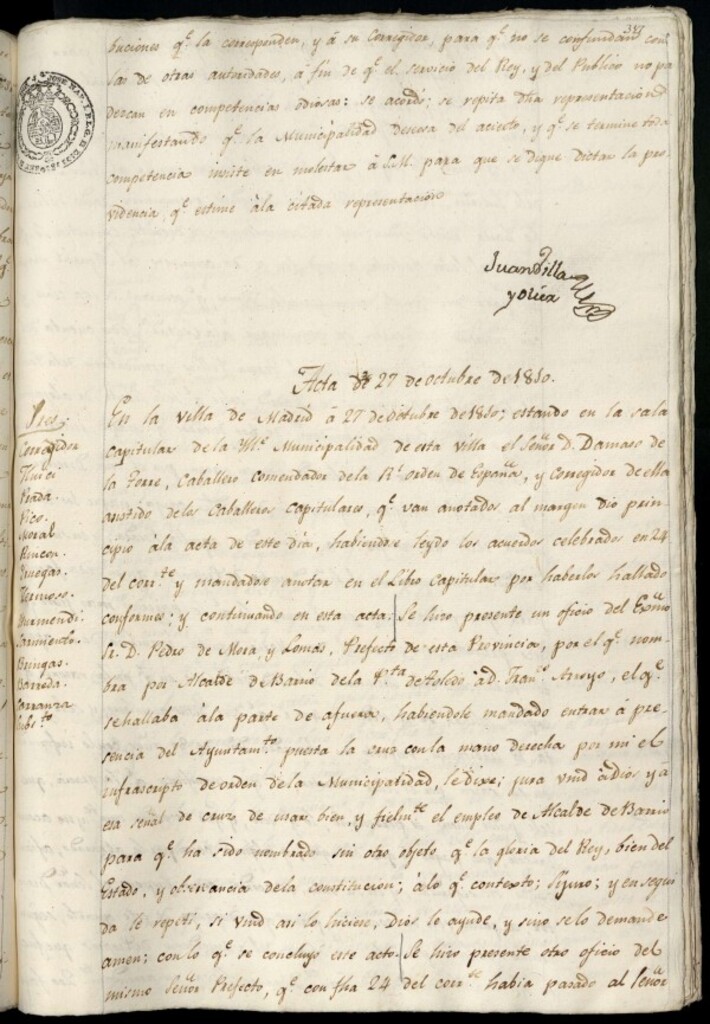 317
buciones q.e la corresponden, y á su Corregidor, para q.e no se confundan con
las de otras autoridades, á fin de q.e el servicio del Rey, y del Publico no pa
dezcan en competencias odiosas: se acordó: se repita dha representacion
manifestando q.e la Municipalidad deseosa del acierto, y q.e se termine toda
competencia insiste en molestar á S.M. para que se digne dictar la pro-
videncia q.e estime à la citada representacion
Juan Villa
y Olier
Acta de 27 de octubre de 1810.
En la villa de Madrid à 27 de octubre de 1810; estando en la sala
capitular de la Ill.e Municipalidad de esta villa el Señor D. Damaso de
la Torre, Caballero comendador de la R.l orden de España, y Corregidor de ella
asistido de los Caballeros capitulares, q.e van anotados al margen dio prin-
cipio à la acta de este dia, habiendose leydo los acuerdos celebrados en 24
del corr.te y mandadose anotar en el Libro capitular por haberlos hallado
conformes: y continuando en esta acta. Se hizo presente un oficio del Exmo
Sr. D. Pedro de Mora, y Lomas, Prefecto de esta Provincia, por el q.e nom-
bra por Alcalde de Barrio de la P.ta de Toledo à D. Fran.co Arroyo, el q.e
se hallaba à la parte de afuera, habiendole mandado entrar á pre-
sencia del Ayuntam.to puesta la cruz con la mano derecha por mi el
infrascripto de orden de la Municipalidad, le dixe; jura vmd à Dios y á
esa señal de cruz de usar bien, y fielm.te el empleo de Alcalde de Barrio
para q.e ha sido nombrado sin otro objeto q.e la gloria del Rey, bien del
Estado, y observancia de la constitucion; à lo q.e contexto; si juro; y en segui
da le repeti, si vmd asi lo hiciese, Dios le ayude, y sino se lo demande
amen; con lo q.e se concluyó este acto. Se hizo presente otro oficio del
mismo Señor Prefecto, q.e con fha 24 del corr.te habia pasado al Señor
Pres.
Corregidor
Prada.
Pico.
Moral
Rincon.
Hermoso.
Sarmiento.
Bringas.
Barreda.
Carranza
Subs.to